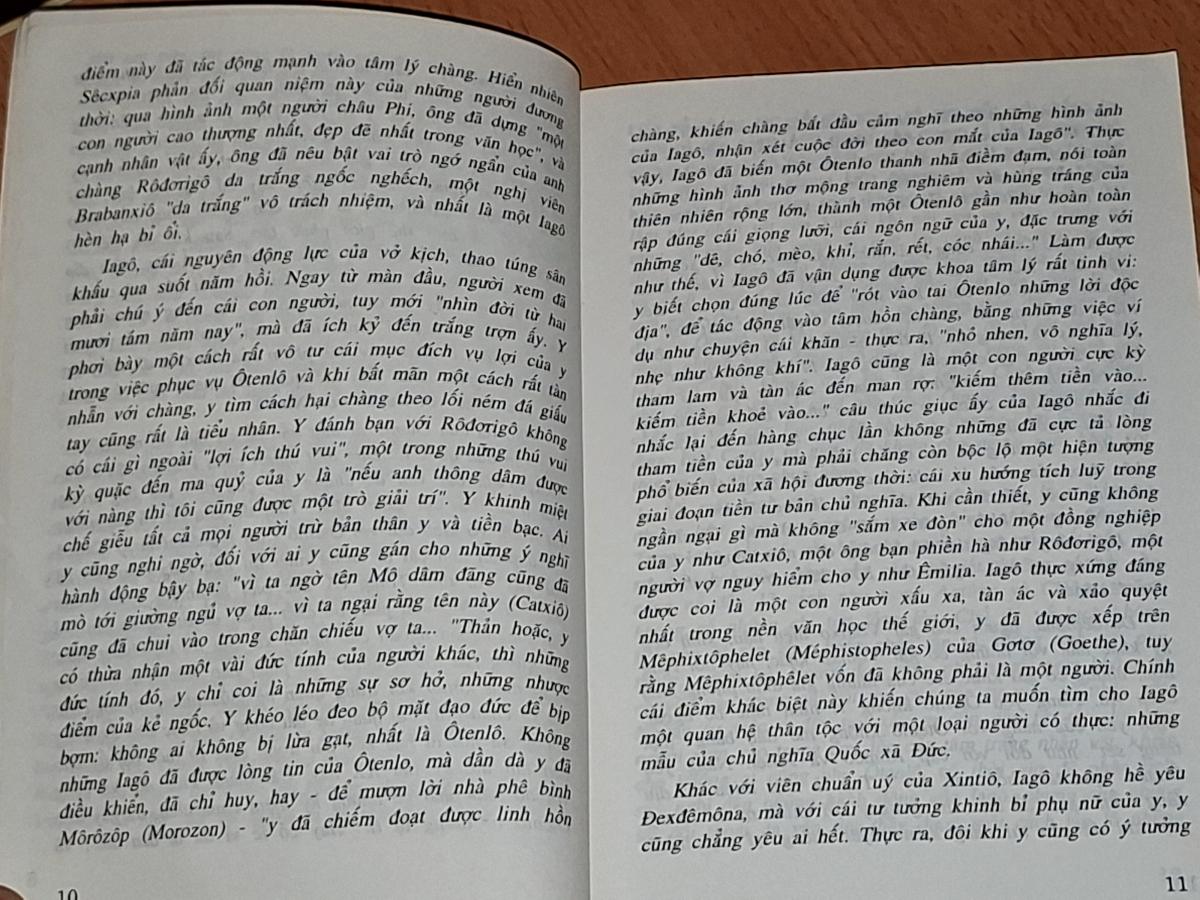 điểm này đã tác động mạnh vào tâm lý chàng. Hiển nhiên
Sêcxpia phản đối quan niệm này của những người đương
thời: qua hình ảnh một người châu Phi, ông đã dựng "một
con người cao thượng nhất, đẹp đẽ nhất trong văn học", và
cạnh nhân vật ấy, ông đã nêu bật vai trò ngớ ngẩn của anh
chàng Rôđơrigô da trắng ngốc nghếch, một nghị viên
Brabanxiô "da trắng" vô trách nhiệm, và nhất là một Iagô
hèn hạ bỉ ổi.
Iagô, cái nguyên động lực của vở kịch, thao túng sân
khấu qua suốt năm hồi. Ngay từ màn đầu, người xem đã
phải chú ý đến cái con người, tuy mới "nhìn đời từ hai
mươi tám năm nay", mà đã ích kỷ đến trắng trợn ấy. Y
phơi bày một cách rất vô tư cái mục đích vụ lợi của y
trong việc phục vụ Ôtenlô và khi bất mãn một cách rất tàn
nhẫn với chàng, y tìm cách hại chàng theo lối ném đá giấu
tay cũng rất là tiểu nhân. Y đánh bạn với Rôđơrigô không
có cái gì ngoài "lợi ích thú vui", một trong những thú vui
kỳ quặc đến ma quỷ của y là "nếu anh thông dâm được
với nàng thì tôi cũng được một trò giải trí". Y khinh miệt
chế giễu tất cả mọi người trừ bản thân y và tiền bạc. Ai
y cũng nghi ngờ, đối với ai y cũng gán cho những ý nghĩ
hành động bậy bạ: "vì ta ngờ tên Mô dâm đãng cũng đã
mò tới giường ngủ vợ ta... vì ta ngại rằng tên này (Catxiô)
cũng đã chui vào trong chăn chiếu vợ ta... "Thản hoặc, y
có thừa nhận một vài đức tính của người khác, thì những
đức tính đó, y chỉ coi là những sự sơ hở, những nhược
điểm của kẻ ngốc. Y khéo léo đeo bộ mặt đạo đức để bịp
bợm: không ai không bị lừa gạt, nhất là Ôtenlô. Không
những Iagô đã được lòng tin của Ôtenlo, mà dần dà y đã
điều khiển, đã chỉ huy, hay - để mượn lời nhà phê bình
Môrôzôp (Morozon) - "y đã chiếm đoạt được linh hồn
10
chàng, khiến chàng bắt đầu cảm nghĩ theo những hình ảnh
của Iagô, nhận xét cuộc đời theo con mắt của Iagô". Thực
vậy, Iagô đã biến một Ôtenlo thanh nhã điềm đạm, nói toàn
những hình ảnh thơ mộng trang nghiêm và hùng tráng của
thiên nhiên rộng lớn, thành một Ôtenlô gần như hoàn toàn
rập đúng cái giọng lưỡi, cái ngôn ngữ của y, đặc trưng với
những "dê, chó, mèo, khỉ, rắn, rết, cóc nhái..." Làm được
như thế, vì Iagô đã vận dụng được khoa tâm lý rất tinh vi:
y biết chọn đúng lúc để "rót vào tai Ôtenlo những lời độc
địa", để tác động vào tâm hồn chàng, bằng những việc ví
dụ như chuyện cái khăn - thực ra, "nhỏ nhen, vô nghĩa lý,
nhẹ như không khí". Iagô cũng là một con người cực kỳ
tham lam và tàn ác đến man rợ: "kiếm thêm tiền vào...
kiếm tiền khoẻ vào..." câu thúc giục ấy của Iagô nhắc đi
nhắc lại đến hàng chục lần không những đã cực tả lòng
tham tiền của y mà phải chăng còn bộc lộ một hiện tượng
phổ biến của xã hội đương thời: cái xu hướng tích luỹ trong
giai đoạn tiền tư bản chủ nghĩa. Khi cần thiết, y cũng không
ngần ngại gì mà không "sắm xe đòn" cho một đồng nghiệp
của y như Catxiô, một ông bạn phiền hà như Rôđơrigô, một
người vợ nguy hiểm cho y như Êmilia. Iagô thực xứng đáng
được coi là một con người xấu xa, tàn ác và xảo quyệt
nhất trong nền văn học thế giới, y đã được xếp trên
Mêphixtôphelet (Méphistopheles) của Gơtơ (Goethe), tuy
rằng Mêphixtôphêlet vốn đã không phải là một người. Chính
cái điểm khác biệt này khiến chúng ta muốn tìm cho Iagô
một quan hệ thân tộc với một loại người có thực: những
mẫu của chủ nghĩa Quốc xã Đức.
Khác với viên chuẩn uý của Xintiô, Iagô không hề yêu
Đexđêmôna, mà với cái tư tưởng khinh bỉ phụ nữ của y, y
cũng chẳng yêu ai hết. Thực ra, đôi khi y cũng có ý tưởng
11